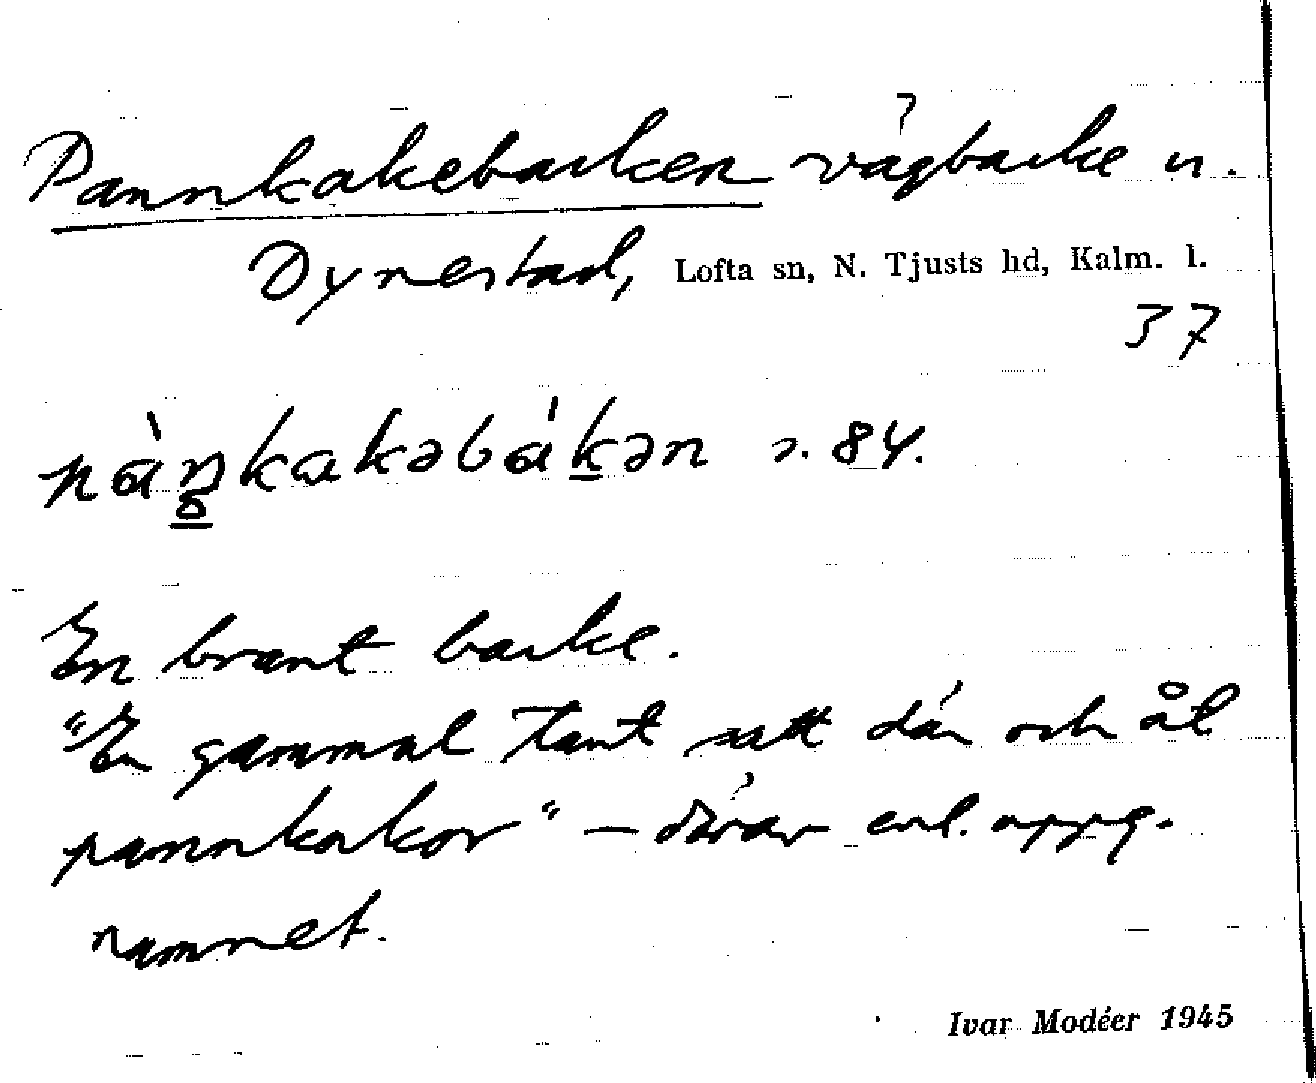 Pannkakebacken vägbacke n.
Dynestad, Lofta sn, N. Tjusts hd, Kalm. l.
37
s. 84.
En brant backe.
"En gammal tant satt där och åt
pannkakor" – därav enl. uppg.
namnet.
Ivar Modéer 1945